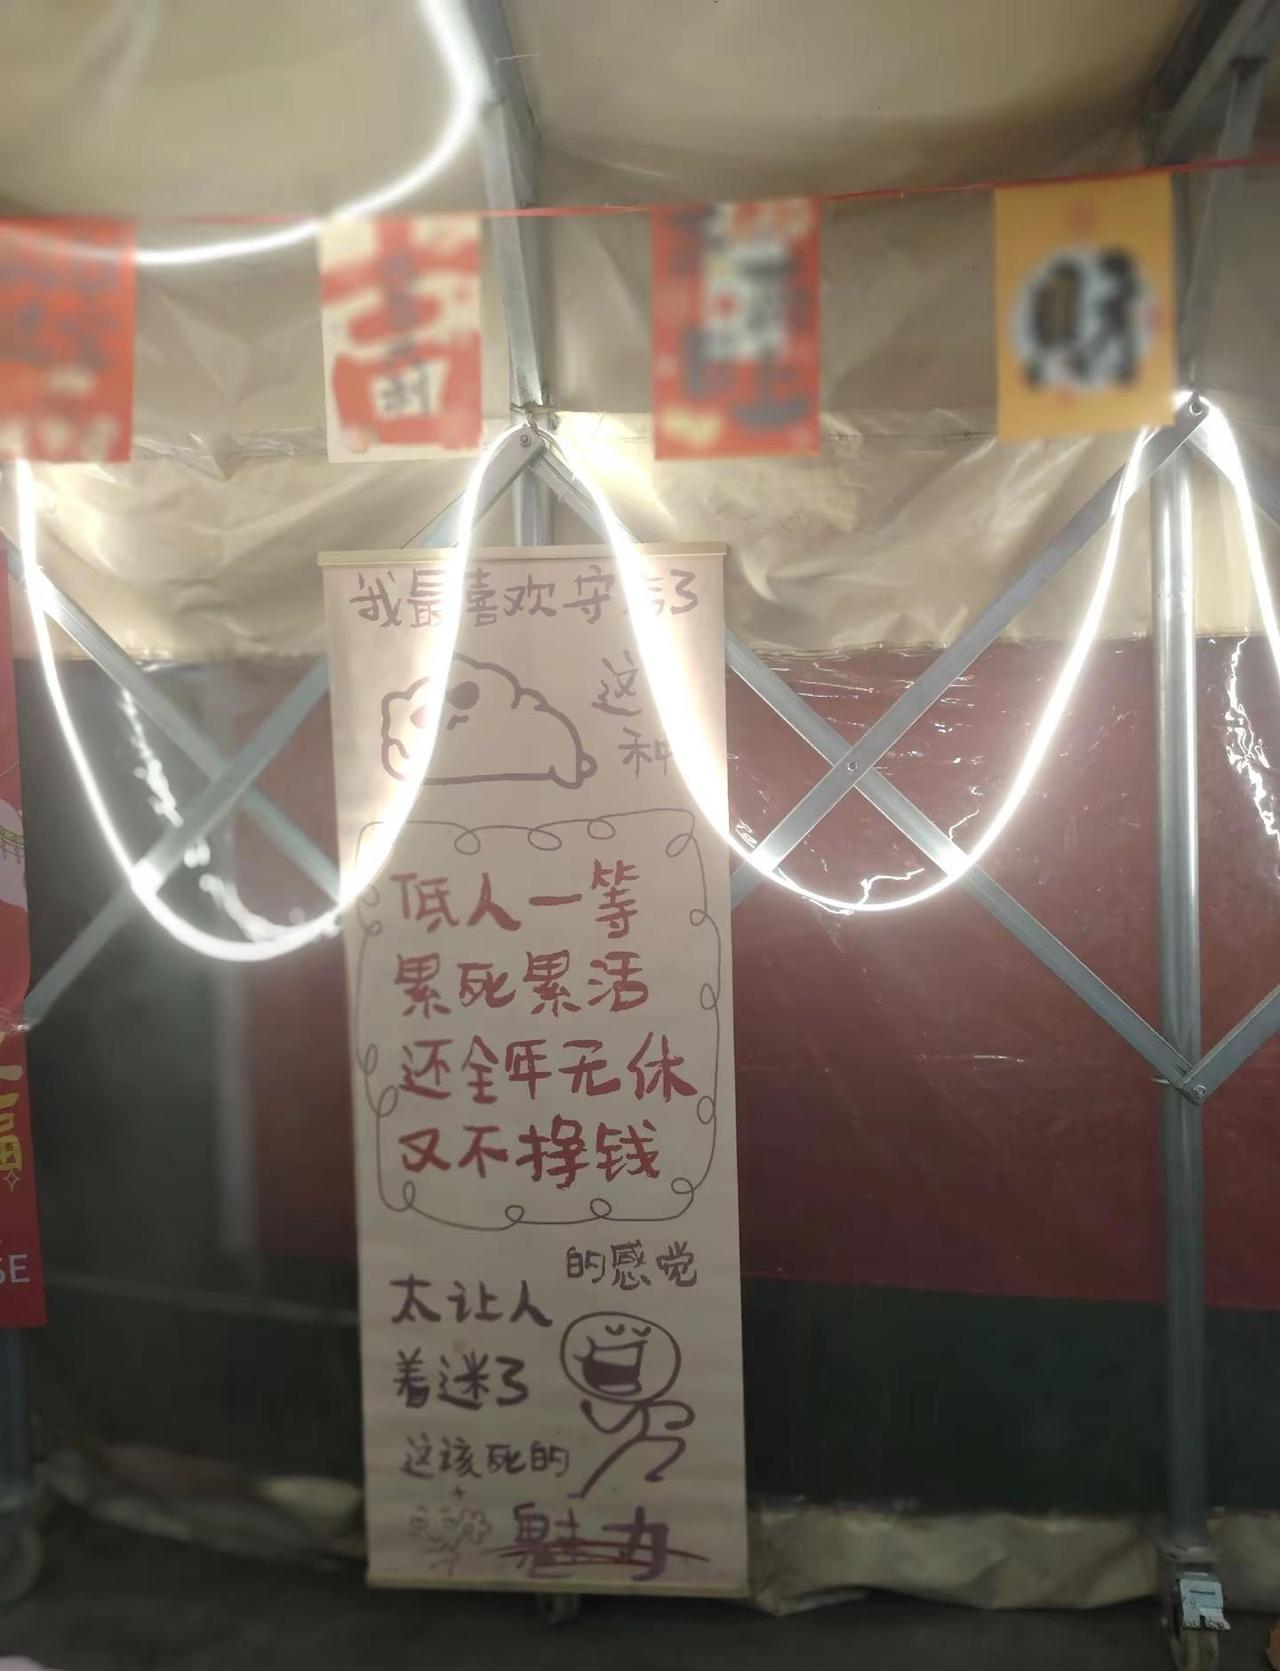 吉
我最喜欢守店了
这
种
低人一等
累死累活
还全年无休
又不挣钱
的感觉
太让人
着迷了
这该死的
魅力
福
SE